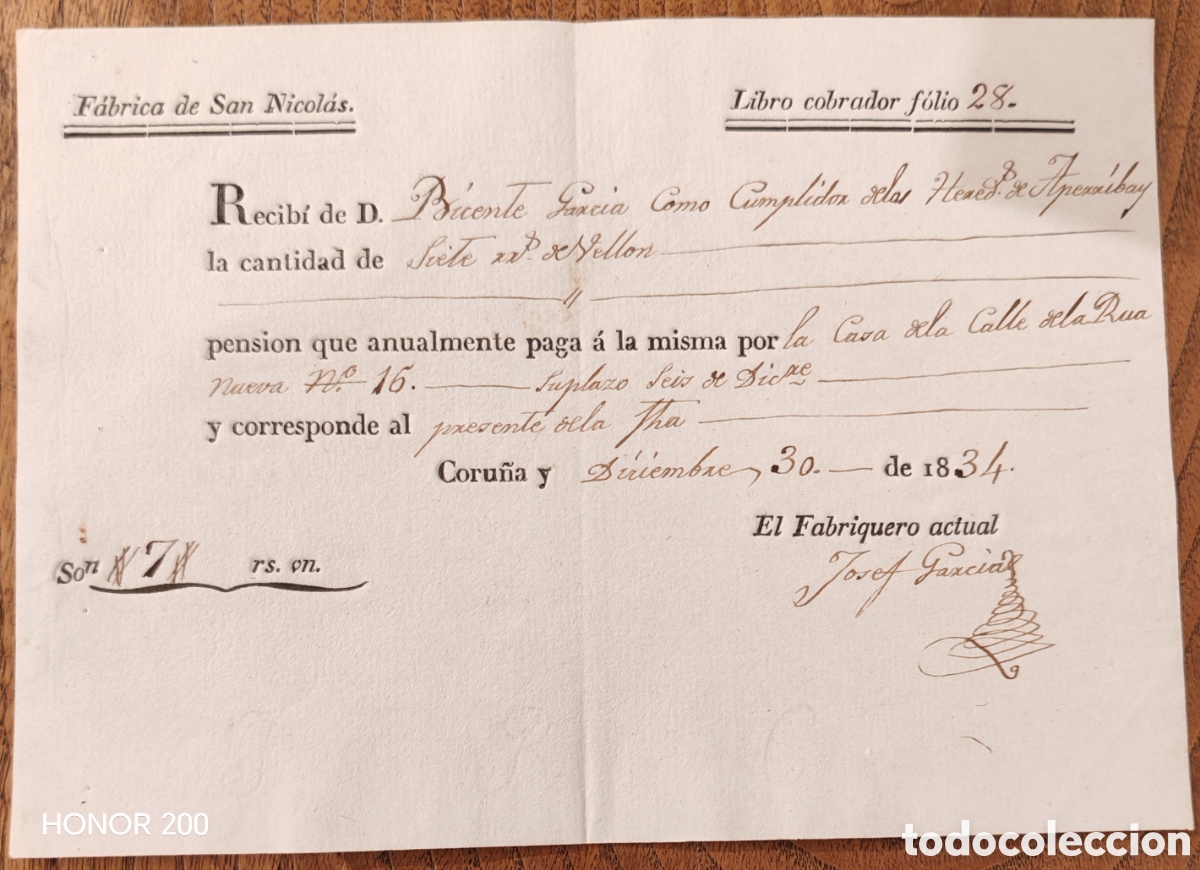 Fábrica de San Nicolás.
Libro cobrador fólio 28.
Recibí de D. Bicente Garcia Como Cumplidor delas Hered.s de Aperribay
la cantidad de Siete rr.s de Vellon
pension que anualmente paga á la misma por la Casa dela Calle dela Rua
Nueva N.o 16. Suplazo Seis de Dic.re
y corresponde al presente dela fha
Coruña y Diciembre 30. de 1834.
El Fabriquero actual
Son #7# rs. vn.
Josef Garcia
HONOR 200
todocoleccion